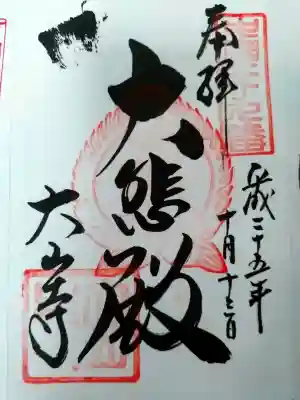 奉拝
平成二十五年
十月十三日
大悲殿
大山寺